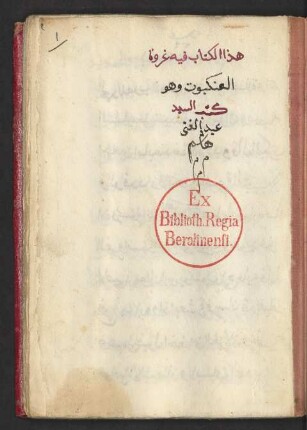 ١
هذا الكتاب فيه غزوة
العنكبوت وهو
السيد
عبد الغني
م م م
Ex
Biblioth. Regia
Berolinensi.